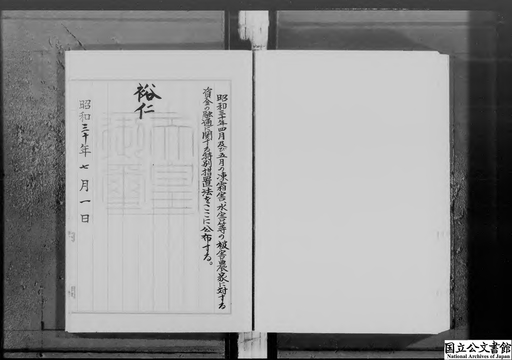 昭和三十年四月及び五月の凍霜害、水害等の被害農家に対する
資金の融通に関する特別措置法をここに公布する。
裕仁
天皇御璽
昭和三十年七月一日
国立公文書館
National Archives of Japan